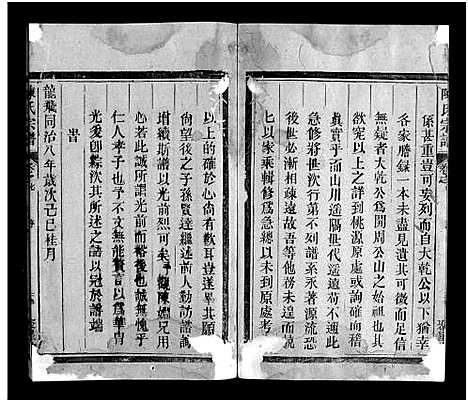 陳氏宗譜
係甚重豈可妄列而自大乾公以下猶幸
各家謄錄一本未盡見遺其可徵而足信
無疑者大乾公爲開周公山之始祖也其
欲求以上之詳到於桃源原處或詢確而稽
真實乎而山川遥隔世代遥遠苟不通此
急修將世次行第不列譜系承著源流恐
後世必漸相疎遠故吾等他計未遑而競
匕以家乘輯修爲急總以未到原處考
以上的確於心尙有歉耳豈遂畢其願
尙望後之子孫賢達繼述前人勤訪譜詞
增續斯譜以光前烈可矣 陳 兄用
心若此誠所謂光前而裕後也誠無愧乎
仁人孝子也予不文無能贊言以爲華胄
光爰卽繇汝其所述之語以冕於譜端
旹
龍飛同治八年歲次己巳桂月
陳氏宗譜